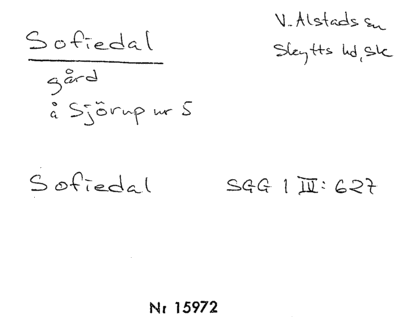 Sofiedal
V. Alstads sn
Skytts hd, Sk
gård
å Sjörup nr 5
Sofiedal SGG 1 IV: 627
Nr 15972